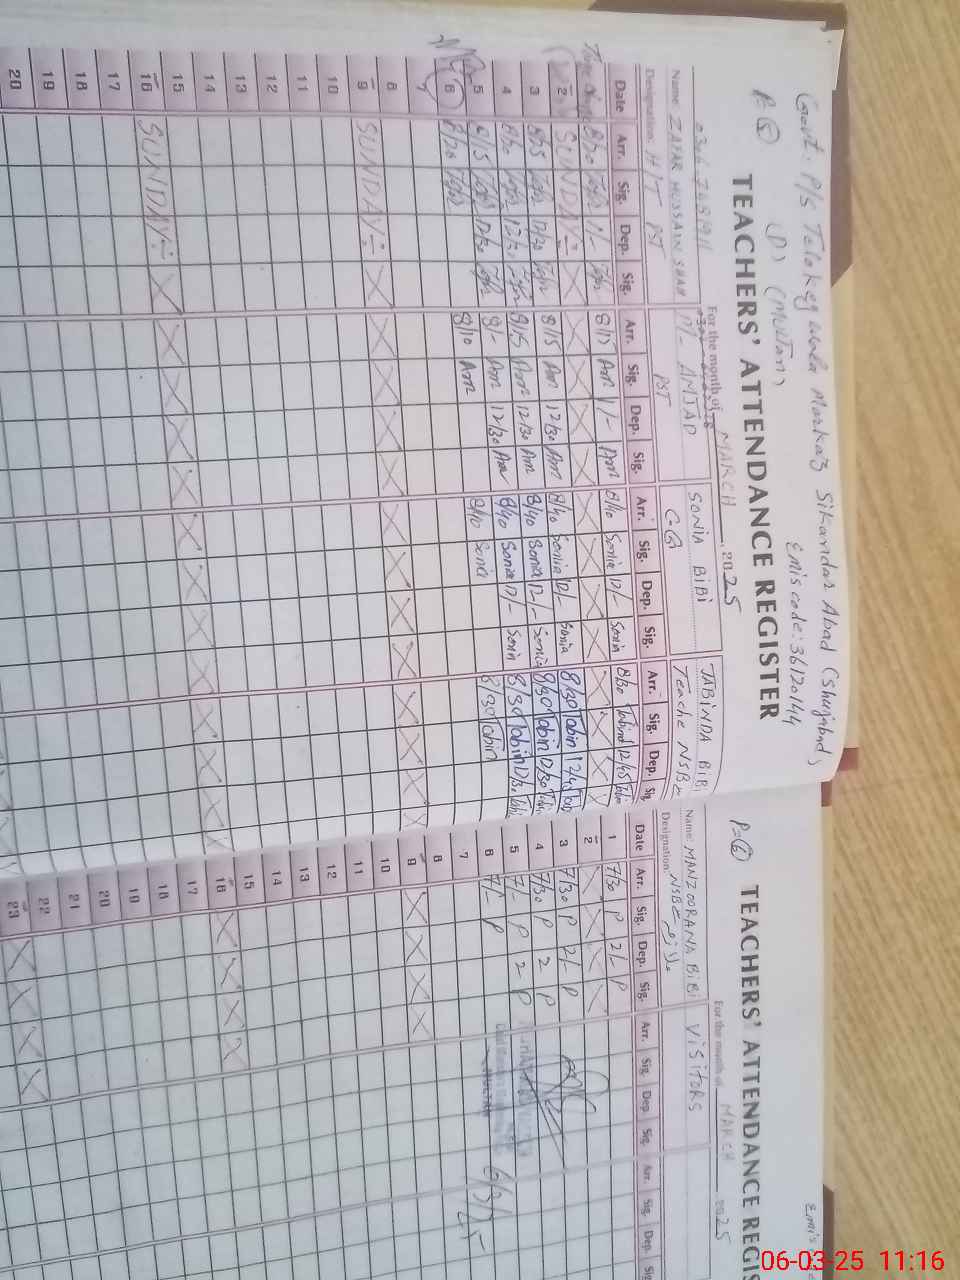 Govt. P/S
Markaz Sikandar Abad (Shujabad)
(P) (Multan)
Emis code: 36120144
P=5
TEACHERS' ATTENDANCE REGISTER
For the month of MARCH, 2025
Name: ZAFAR HUSSAIN SHAH
AMJAD
SONIA BIBI
TABINDA BIBI
Designation: H/T PST
PST
Teache NSBE
Date Arr. Sig. Dep. Sig. Arr. Sig. Dep. Sig. Arr. Sig. Dep. Sig. Arr. Sig. Dep. Sig.
8/20 1/- 8/15 Am 1/- Am 8/40 Sonia 12/- Sonia 8/30 12/45
2 SUNDAY
3 8/25 12/30 8/15 Am 12/30 Am 8/40 Sonia 12/- Sonia 8/30 Tobin 12/45
4 8/20 12/30 8/15 Am 12/30 Am 8/40 Sonia 12/- Sonia 8/30 Tobin 12/30
5 8/15 12/30 8/- Am 12/30 Am 8/40 Sonia 12/- Sonia 8/30 Tobin 12/30
6 8/20 8/10 Am 8/40 Sonia 8/30 Tobin
7
8
9 SUNDAY
10
11
12
13
14
15
16 SUNDAY
17
18
19
20
P=6
TEACHERS' ATTENDANCE REGIS
For the month of MARCH 2025
Emis
Name: MANZOORANA BIBI
VISITORS
Designation: NSBE
Date Arr. Sig. Dep. Sig. Arr. Sig. Dep. Sig. Arr. Sig. Dep. Sig.
1 7/30 P 2/- P
2
3 7/30 P 2/- P
4 7/30 P 2 P
5 7/- P 2 P
6 7/- P
6/3/25
7
8
9
10
11
12
13
14
15
16
17
18
19
20
21
22
23
06-03-25 11:16